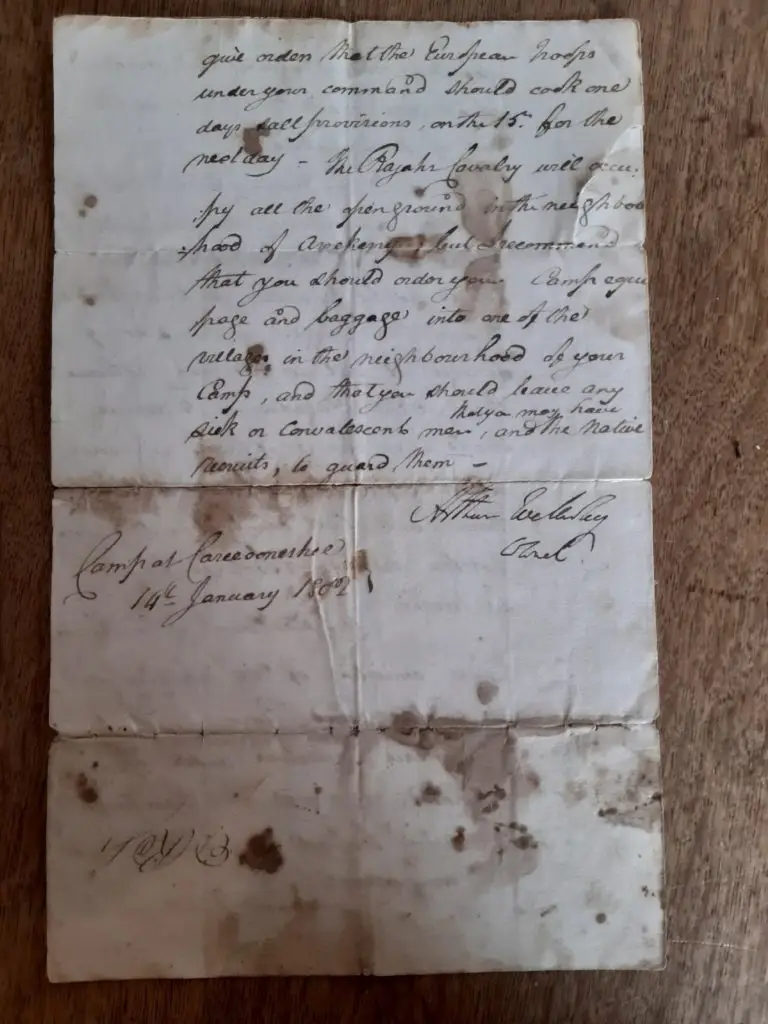 give orders that the European Troops
under your command should cook one
days salt provisions, on the 15th. for the
next day - The Rajahs Cavalry will occu:
:py all the open ground in the neighbou
:hood of Arekeery; but I recommend
that you should order your Camp equi
page and baggage into one of the
villages in the neighbourhood of your
Camp, and that you should leave any
that you may have
sick or convalescent men, and the Native
recruits, to guard them -
Arthur Wellesley
Colonel.
Camp at
14th January 1802